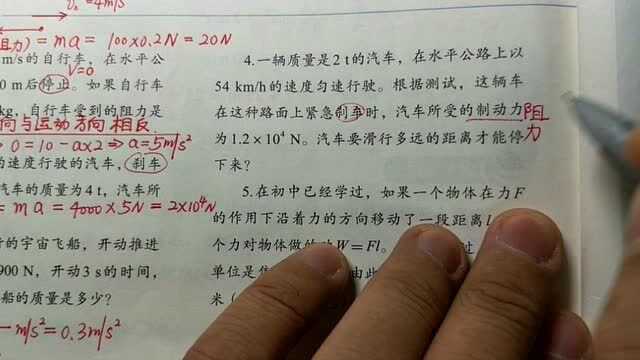 v₀ = 4m/s
阻力) = ma = 100×0.2N = 20N
m/s 的自行车，在水平公
v=0
0 m 后停止。如果自行车
kg，自行车受到的阻力是
向与运动方向相反
⇒ 0=10-a×2 ⇒ a=5m/s²
的速度行驶的汽车，刹车
汽车的质量为 4 t，汽车所
= ma = 4000×5N = 2×10⁴N
的宇宙飞船，开动推进
900 N，开动 3 s 的时间，
船的质量是多少？
m/s² = 0.3m/s²
4. 一辆质量是 2 t 的汽车，在水平公路上以
54 km/h 的速度匀速行驶。根据测试，这辆车
在这种路面上紧急刹车时，汽车所受的制动力 阻力
为 1.2×10⁴ N。汽车要滑行多远的距离才能停
下来？
5. 在初中已经学过，如果一个物体在力 F
的作用下沿着力的方向移动了一段距离 l
个力对物体做的功 W=Fl。 过
单位是 由此
米（